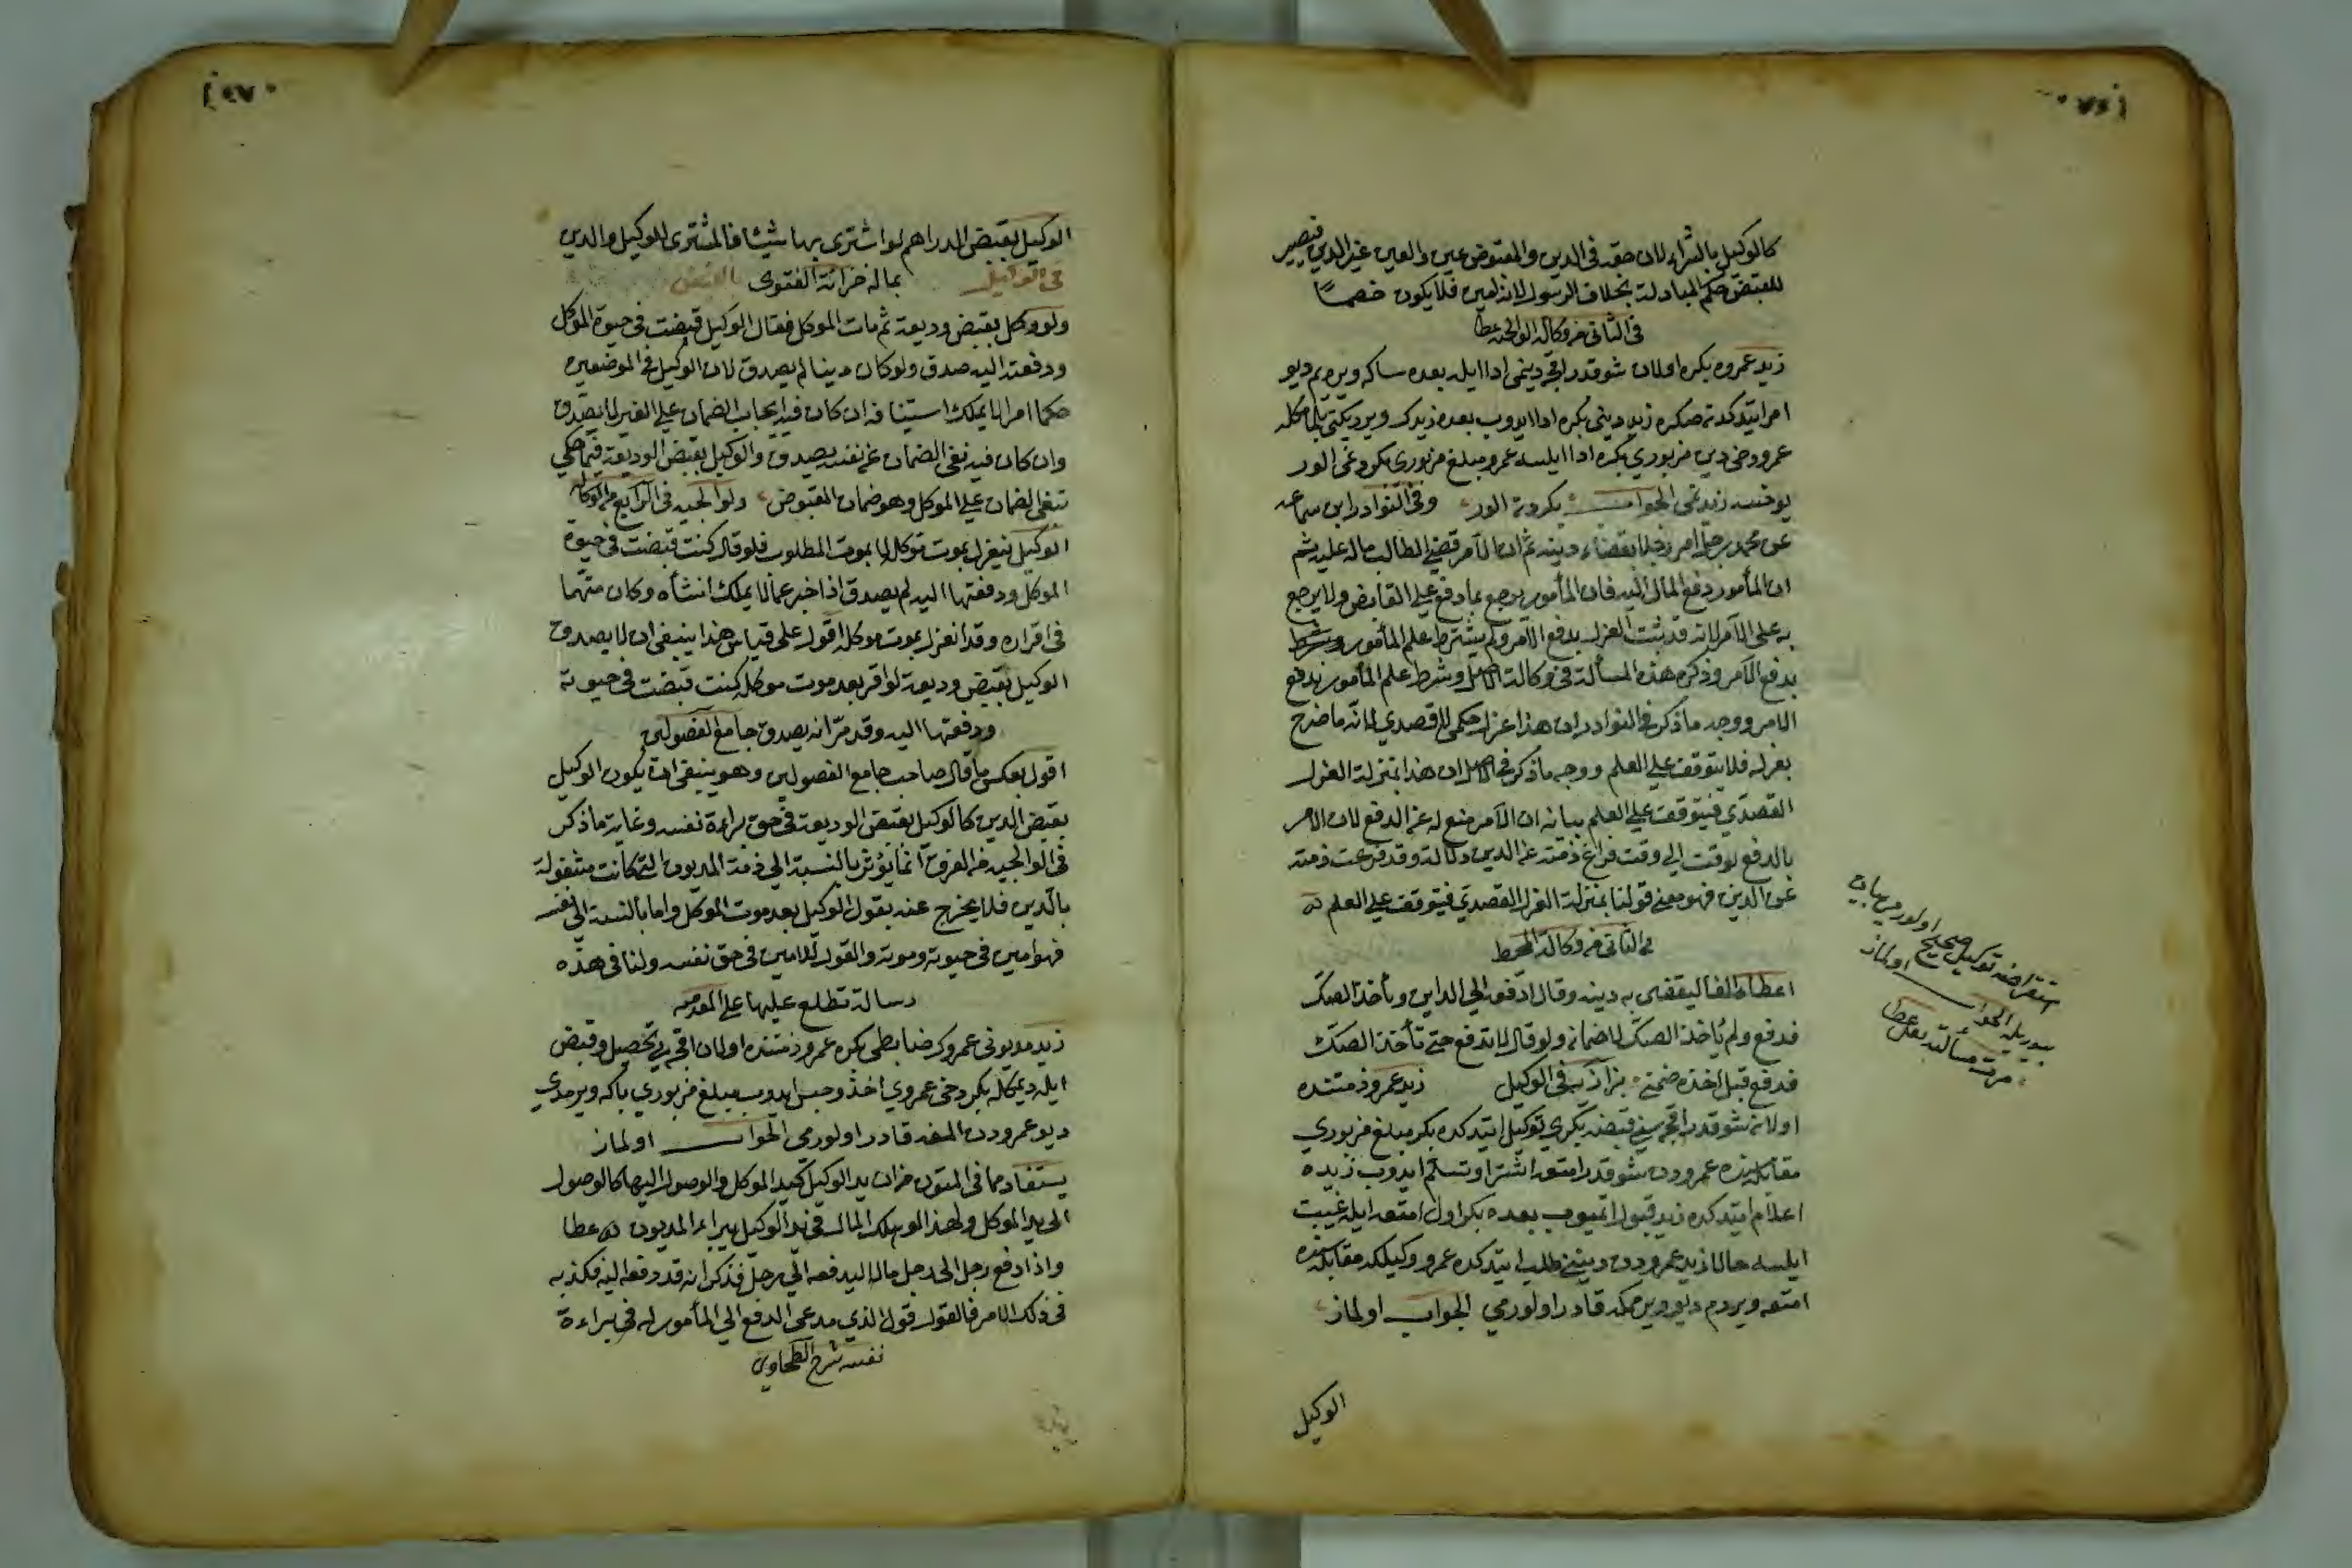 كالوكيل بالشراء لان حقه في الدين والمقبوض عين والعين غير الدين فيصير
للقبض حكم المبادلة بخلاف الرسول لانه امين فلا يكون خصما
في الثاني من وكالة الولوالجيه عطا
زيد عمروه بكره اولان شو قدر اقچه دينمى ادا ايله بعده سا كه ويره يم ديو
امر ايتدكدنصكره زيد دينى بكره ادا ايدوب بعده زيدك ويرديكنى بلما مكله
عمرو دخى دين مزبوري بكره ادا ايلسه عمرو مبلغ مزبورى بكردنمى الور
يوخسه زيدنمى الجواب بكردن الور وفي النوادر ابن سماعه
عن محمد رجل امر رجلا بقضاء دينه ثم ان الآمر قضى الطالب ماله عليه ثم
ان المأمور دفع المال اليه فان المأمور يرجع بما دفع على القابض ولا يرجع
به على الآمر لانه قد ثبت العزل بدفع الآمر ولم يشترط علم المأمور
بدفع الآمر وذكره هذه المسألة في وكالة الاصل وشرط علم المأمور بدفع
الامر ووجه ما ذكر في النوادر ان هذا عزل حكمي لا قصدي لانه ما صرح
بعزله فلا يتوقف على العلم ووجه ما ذكر في الاصل ان هذا بمنزلة العزل
القصدي فيتوقف على العلم بيانه ان الآمر منع له عن الدفع لان الامر
بالدفع لوقت الى وقت فراغ ذمته عن الدين دلالة وقد فرغت ذمته
عن الدين فهو معنى قولنا بمنزلة العزل القصدي فيتوقف على العلم
في الثاني من وكالة المحيط
اعطاه الفا ليقضى به دينه وقال ادفعه الى الداين وتأخذ الصك
فدفع ولم يأخذ الصك لا ضمان ولو قال لا تدفع حتى تأخذ الصك
فدفع قبل اخذه ضمن بزازيه في الوكيل زيد عمرو ذمتنده
اولان شو قدر اقچه سنى قبضه بكري توكيل ايتدكده بكر مبلغ مزبوري
مقابله سنده عمرودن شو قدر امتعه اشترا وتسلم ايدوب زيده
اعلام ايتدكده زيد قبول ايتميوب بعده بكر اول امتعه ايله غيبت
ايلسه حالا زيد عمرودن دينني طلب ايتدكده عمرو وكيلكه مقابله سنده
امتعه ويردم ديو ويرمامكه قادر اولورمي الجواب اولماز
الوكيل
استقراضه توكيل صحيح اولورمى بيان
بيوريله الجواب اولماز
مرت مسألته بنقل عطا
الوكيل بقبض الدراهم لو اشترى بها شيئا فالمشترى للوكيل والدين
في التوكيل بماله خزانة الفتوى بالقبض
ولو وكل بقبض وديعة ثم مات الموكل فقال الوكيل قبضت في حيوة الموكل
ودفعته اليه صدق ولو كان دينا لم يصدق لان الوكيل في الموضعين
حكما امرا لا يملك استينافه ان كان فيه ايجاب الضمان على الغير لا يصدق
وان كان فيه نفى الضمان عن نفسه يصدق والوكيل بقبض الوديعة فيما حكي
ينفى الضمان على الموكل وهو ضمان المقبوض ولوالجيه في الرابع من الوكاله
الوكيل ينعزل بموت موكله لا بموت المطلوب فلو قال كنت قبضت في حيوة
الموكل ودفعتها اليه لم يصدق اذا خبر عما لا يملك انشاه وكان متهما
في اقراره وقد انعزل بموت موكله اقول على قياس هذا ينبغى ان لا يصدق
الوكيل بقبض وديعة لو اقر بعد موت موكله كنت قبضت في حيوته
ودفعتها اليه وقد مر انه يصدق جامع الفصولين
اقول بعكس ما قال صاحب جامع الفصولين وهو ينبغى ان يكون الوكيل
بقبض الدين كالوكيل بقبض الوديعة في حق براءة نفسه وغاية ما ذكر
في الولوالجيه من الفرق انما يؤثر بالنسبة الى ذمة المديون التى كانت مشغولة
بالدين فلا يخرج عنه بقول الوكيل بعد موت الموكل واما بالنسبة الى نفسه
فهو امين في حيوته وموته والقول للامين في حق نفسه ولنا في هذه
رسالة تطلع عليها على المقدسى
زيد مديونى عمروك رضا بطى بكره عمرو ذمتنده اولان اقچه يى تحصيل وقبض
ايله ديمكله بكر دخى عمروي اخذ وحبس ايدوب مبلغ مزبوري باكه ويرمدي
ديو عمرودن المغه قادر اولورمى الجواب اولماز
يستفاد مما في المتون من ان يد الوكيل كيد الموكل والوصول اليها كالوصول
الى يد الموكل ولهذا لو هلك المال في يد الوكيل يبرا المديون عطا
واذا دفع رجل الى رجل مالا ليدفعه الى رجل فذكر انه قد دفعه اليه فكذبه
في ذلك الامر فالقول قول الذي مدعى الدفع الى المأمور له في براءة
نفسه شرح الطحاوي